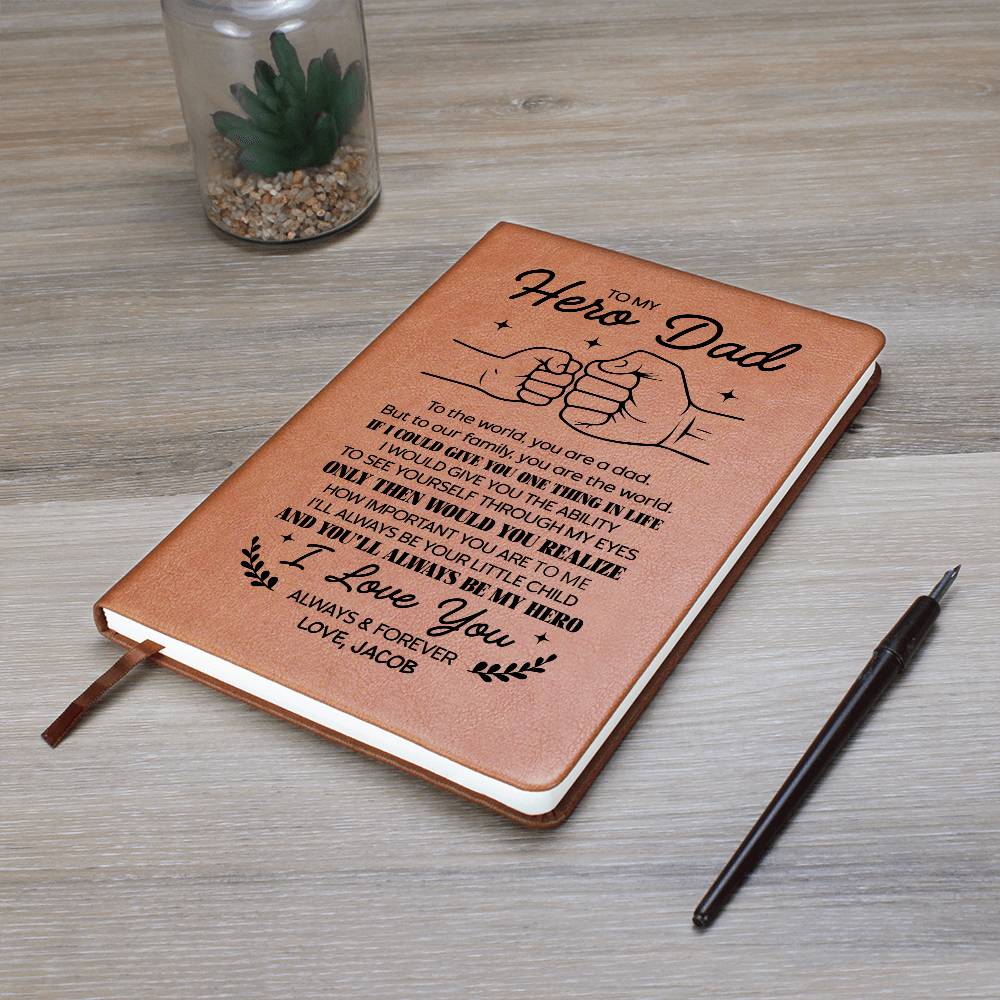 TO MY
Hero Dad
To the world, you are a dad.
But to our family, you are the world.
IF I COULD GIVE YOU ONE THING IN LIFE
I WOULD GIVE YOU THE ABILITY
TO SEE YOURSELF THROUGH MY EYES
ONLY THEN WOULD YOU REALIZE
HOW IMPORTANT YOU ARE TO ME
I'LL ALWAYS BE YOUR LITTLE CHILD
AND YOU'LL ALWAYS BE MY HERO
I Love You
ALWAYS & FOREVER
LOVE, JACOB